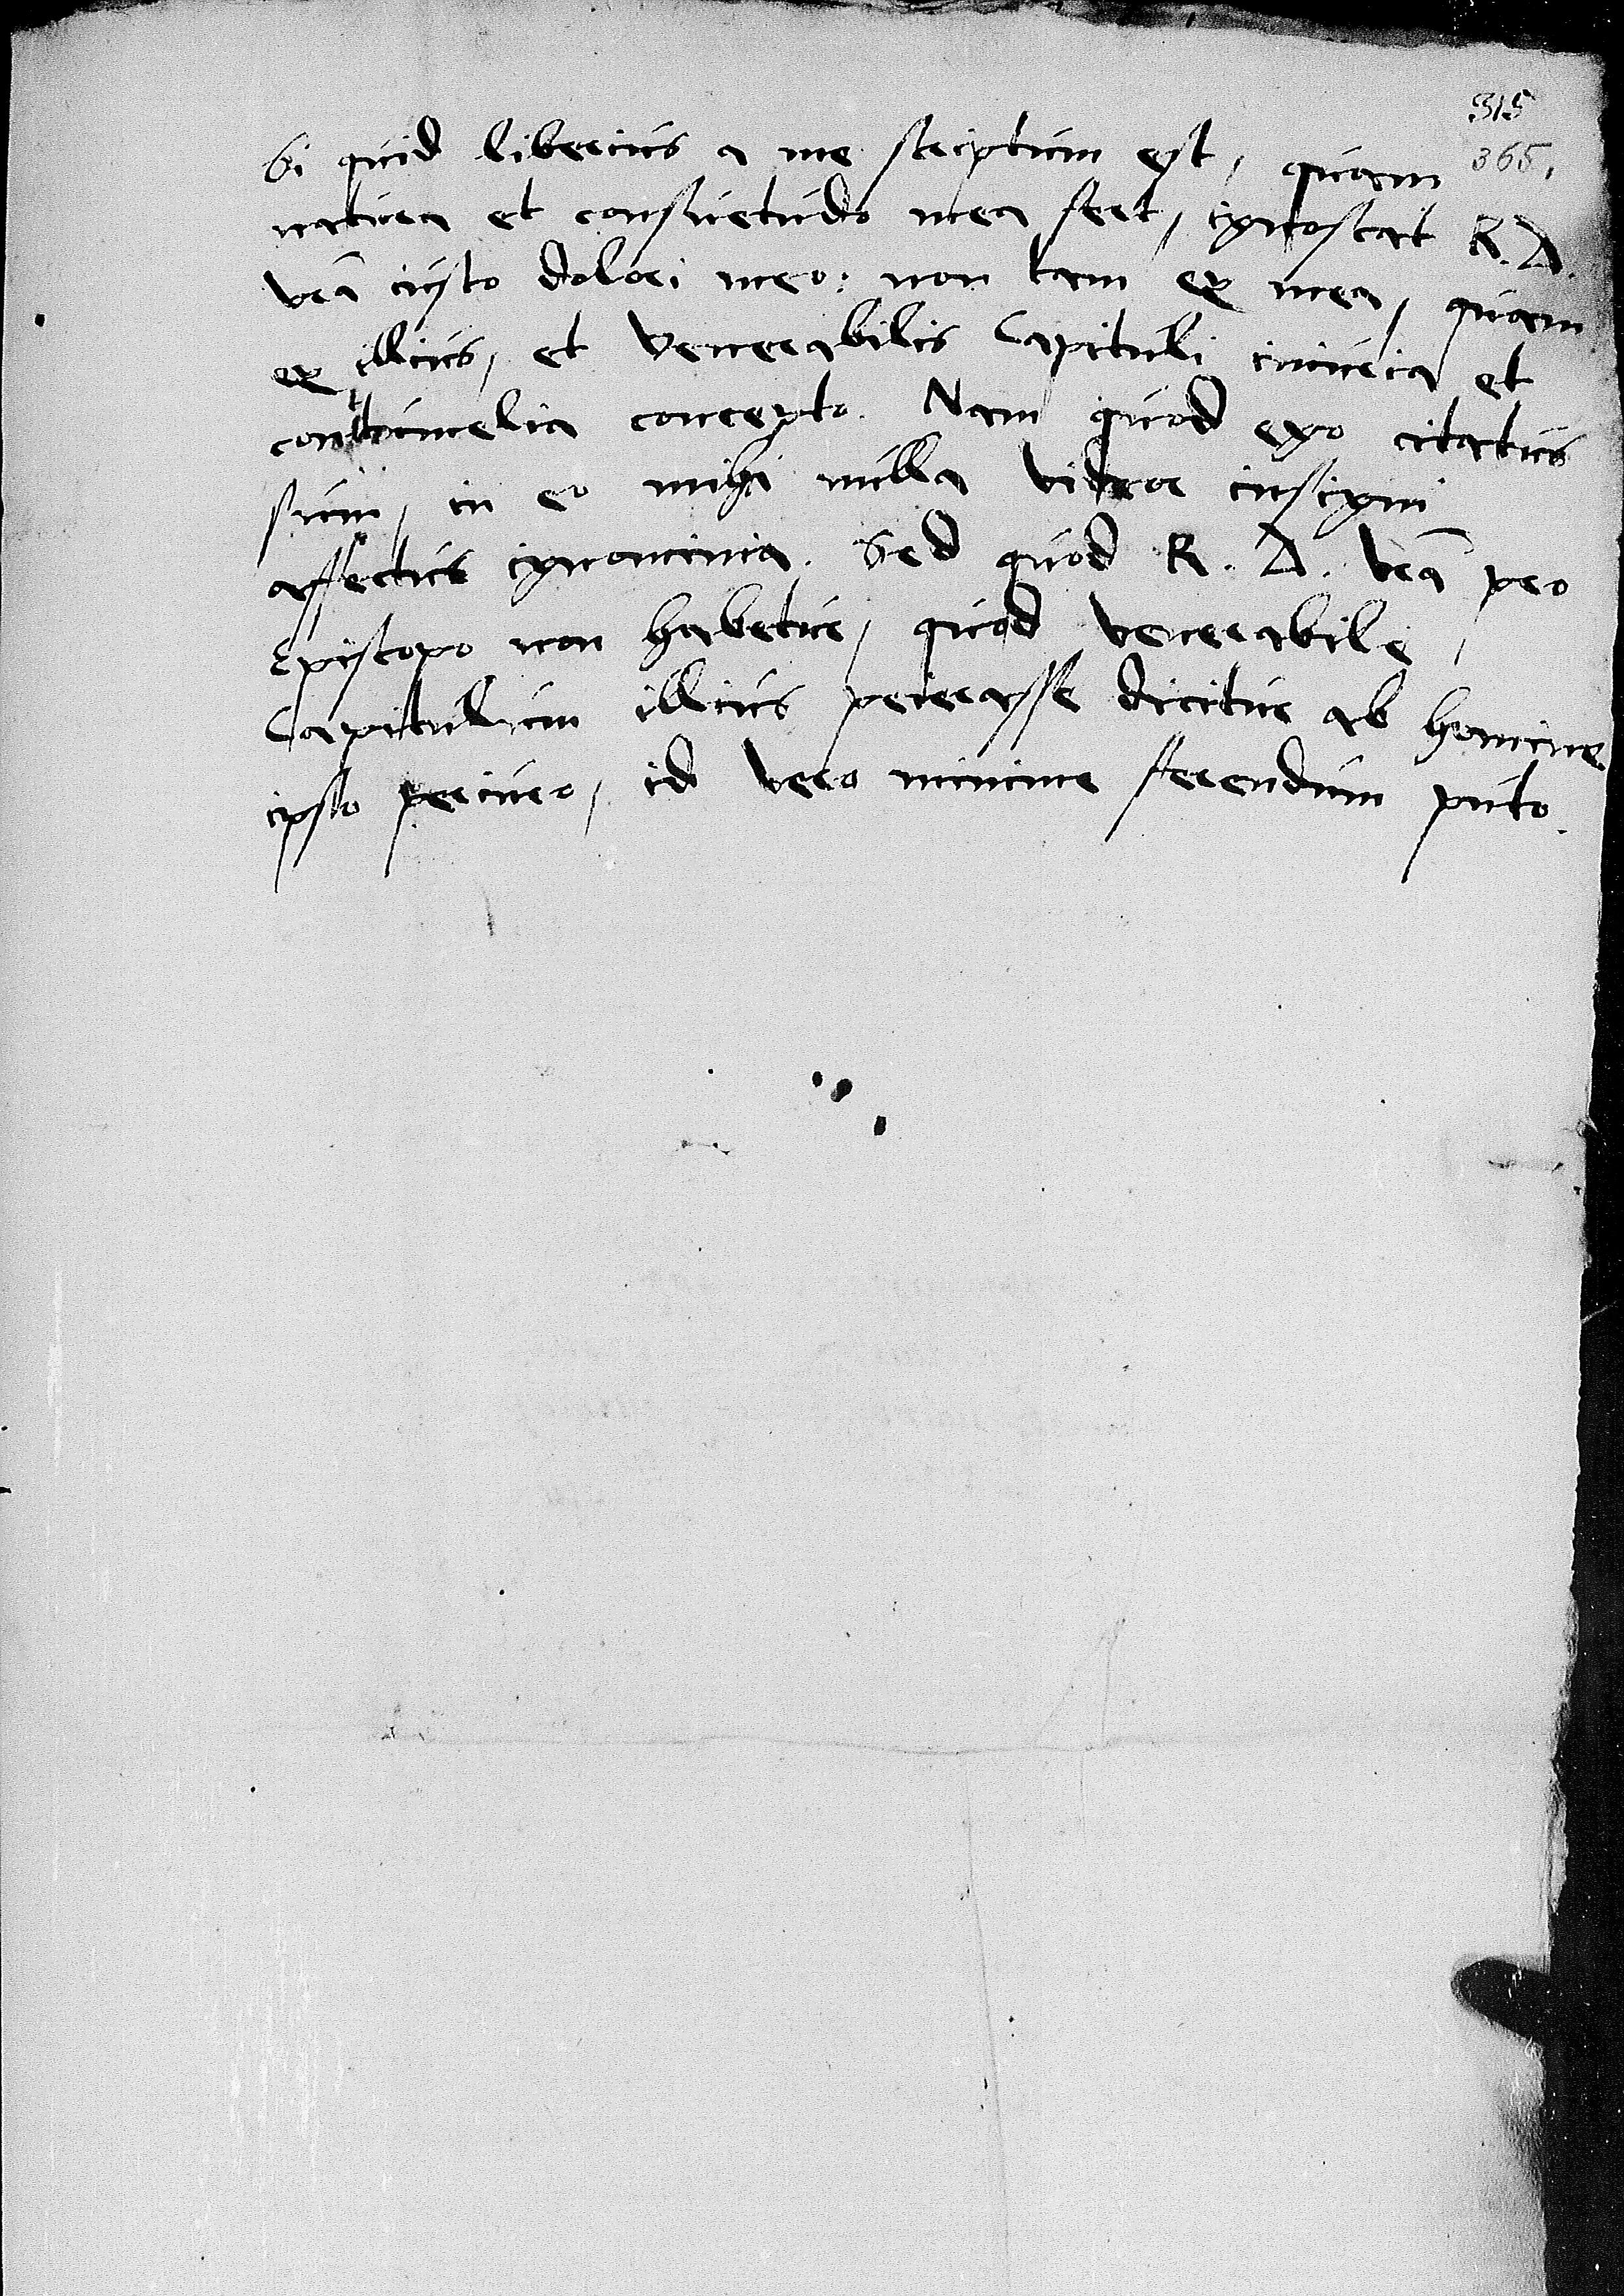 315
365.
Si quid liberius a me scriptum est, quam
natura et consuetudo mea fert, ignoscat R. D.
vra͂ iusto dolori meo: non tam ex mea, quam
ex illius, et Venerabilis Capituli iniuria et
contumelia concepto. Nam quod ego citatus
sum, in eo mihi nulla videor insigni
affectus ignominia. Sed quod R. D. vra͂ pro
Episcopo non habetur, quod venerabile
Capitulum illius peierasse dicitur ab homine
ipso periuro, id vero minime ferendum puto.